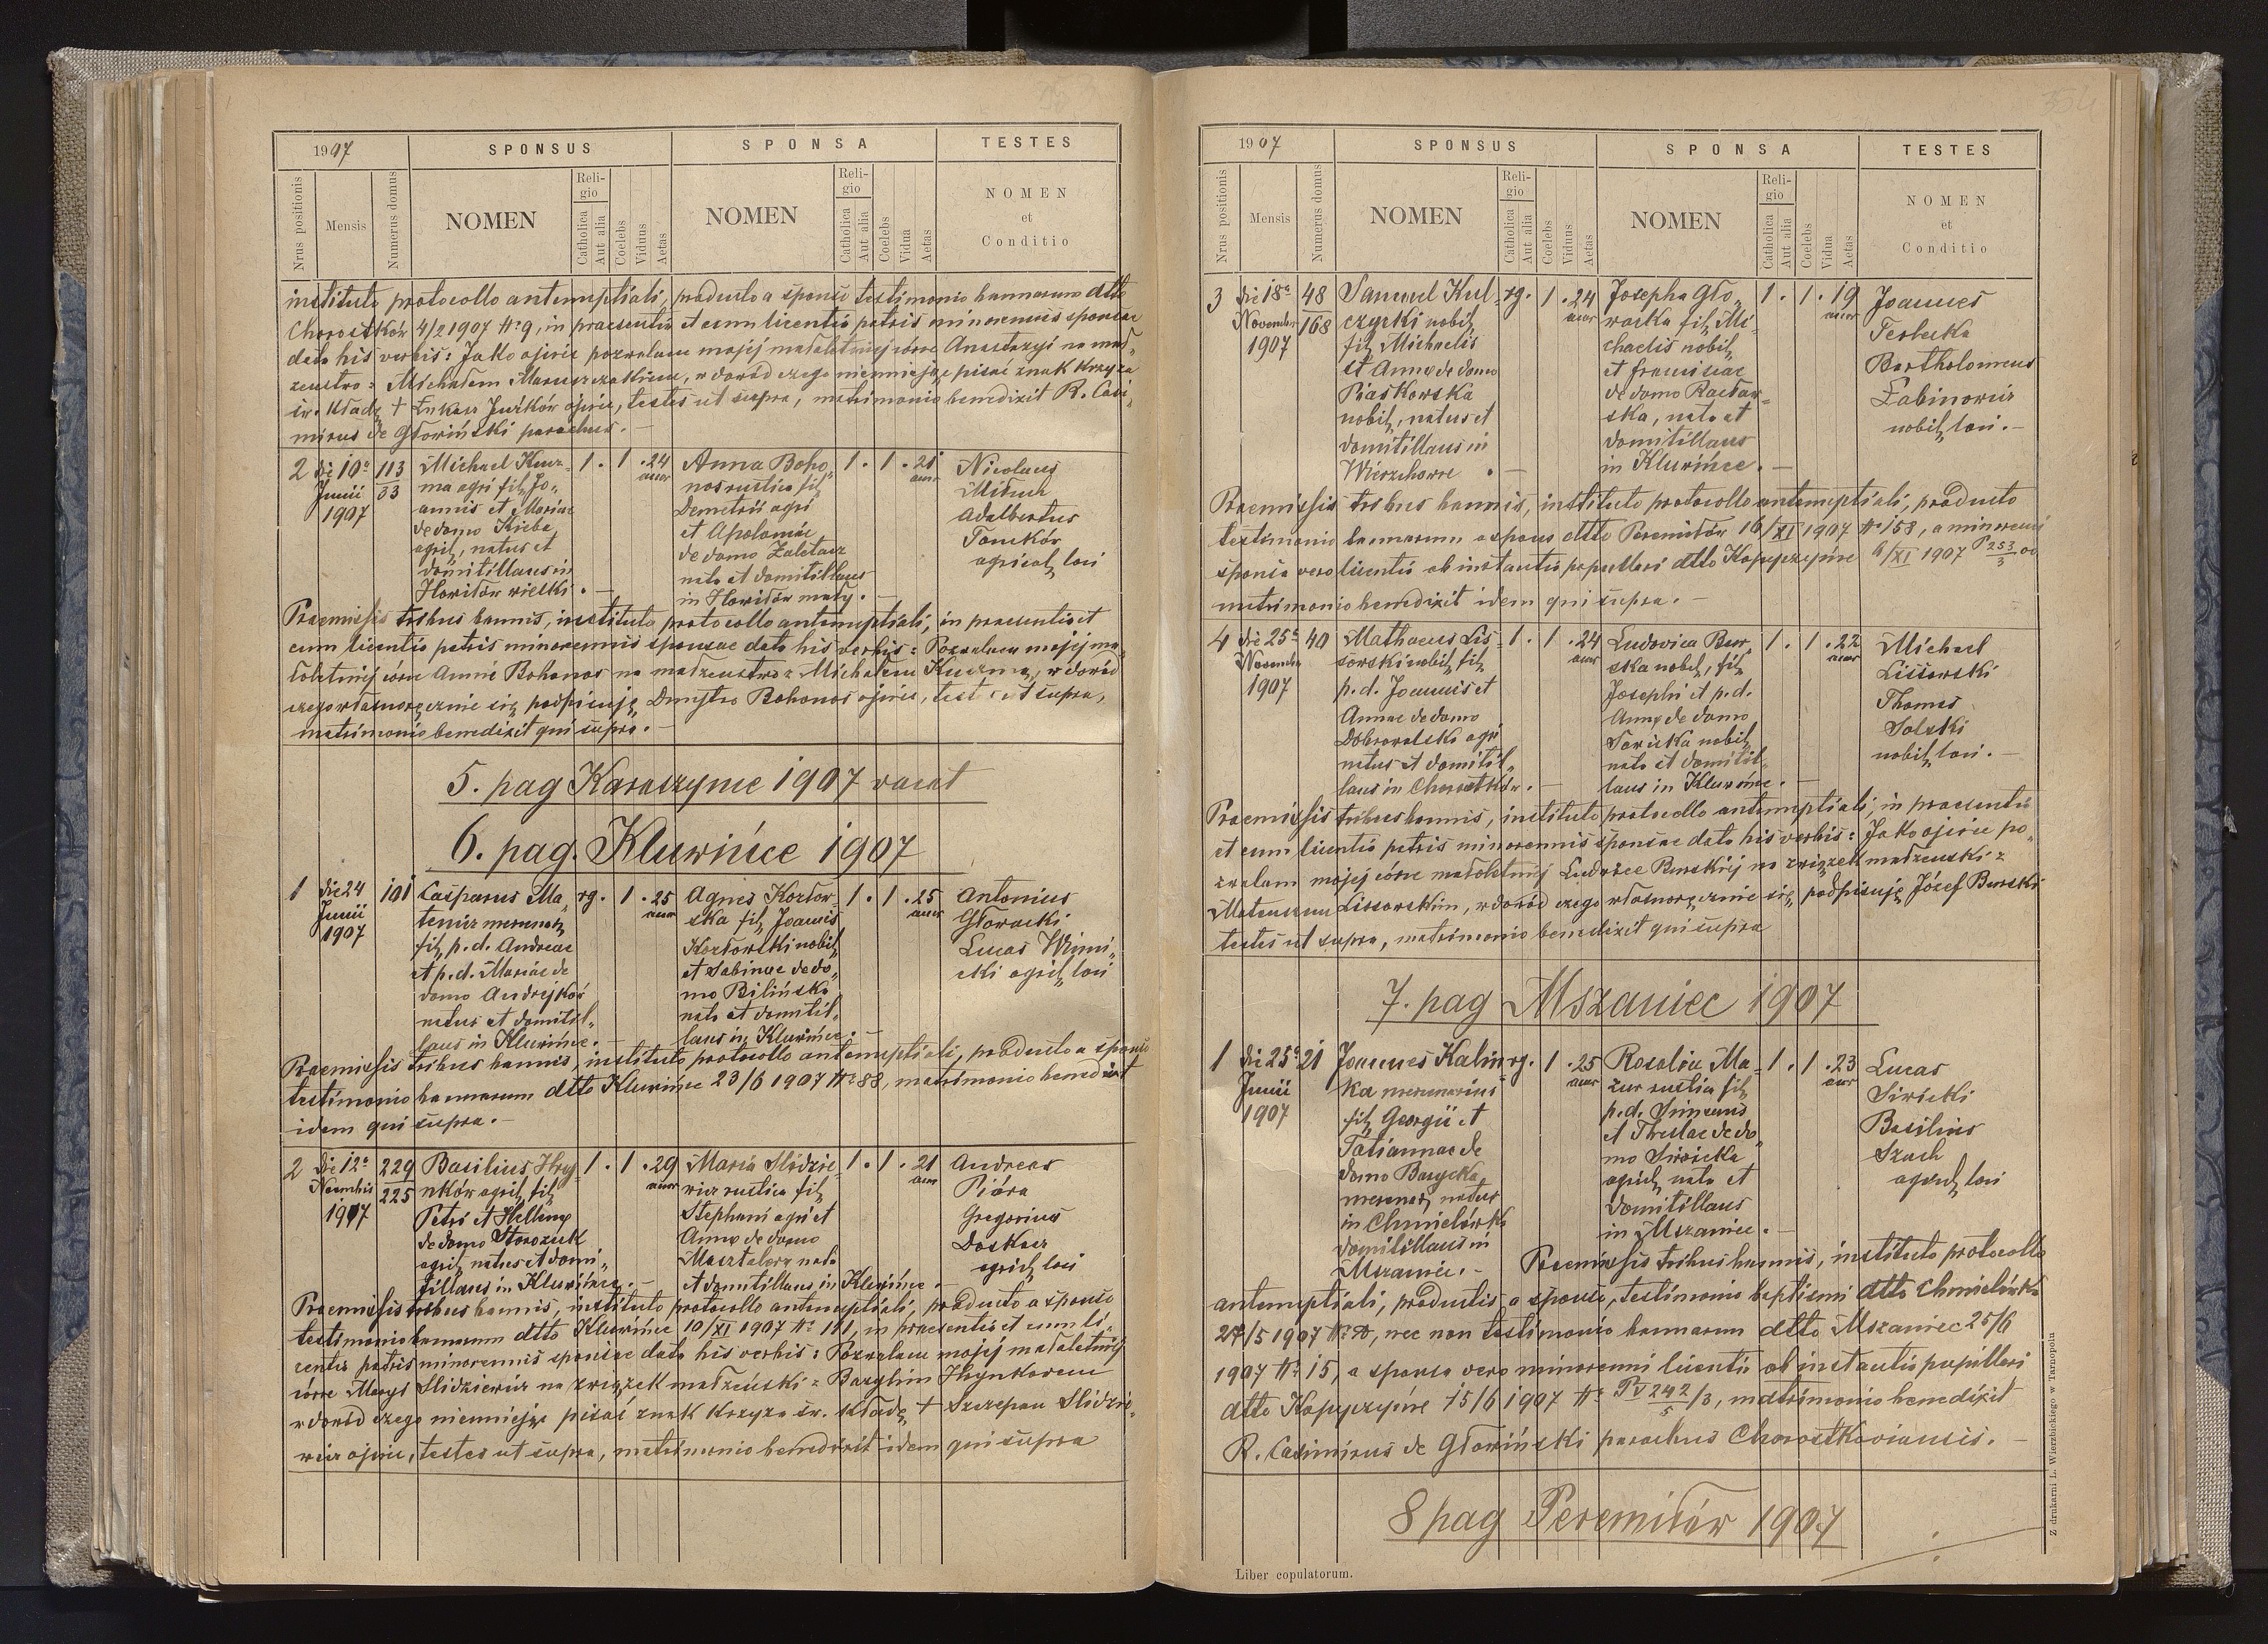 1907 SPONSUS SPONSA TESTES
Nrus positionis Mensis Numerus domus NOMEN Religio Catholica Aut alia Coelebs Viduus Aetas NOMEN Religio Catholica Aut alia Coelebs Vidua Aetas NOMEN et Conditio
instituto protocollo antenuptiali, producto a sponso testimonio bannorum dtto
Chorostków 4/2 1907 № 9, in praesentia et cum licentia patris minorennis sponsae
data his verbis: Jako ojciec pozwalam mojej małoletniej córce Anastazyi na mał„
żeństwo z Michałem Maruszczakiem, w dowód czego nieumiejąc pisać znak krzyża
św. kładę † Łukasz Juśków ojciec, testes ut supra, matrimonio benedixit R. Casi„
mirus de Głowiński parochus.
2 die 10a Junii 1907 113/33
Michael Kuz„
ma agri fil, Jo„
annis et Mariae
de domo Kieba
agric, natus et
domitillans in
Howiłów wielki.
1. 1. 24 annor
Anna Boho„
nos rustica fil,
Demetrii agri
et Apoloniae
de domo Zaletacz
nata et domitillans
in Howiłów mały.
1. 1. 21 annor
Nicolaus
Mitruch
Adalbertus
Tomków
agricol, loci
Praemissis tribus bannis, instituto protocollo antenuptiali, in praesentia et
cum licentia patris minorennis sponsae data his verbis: Pozwalam mojej ma„
łoletniej córce Annie Bohonos na małżeństwo z Michałem Kuzmą, w dowód
czego własnoręcznie się podpisuję, Dmytro Bohonos ojciec, testes ut supra,
matrimonio benedixit qui supra.
5. pag Karaszyńce 1907 vacat
6. pag. Kluwińce 1907
1 die 24 Junii 1907 101
Casparus Ma„
tenicz mercenar,
fil, p.d. Andreae
et p.d. Mariae de
domo Andrejków
natus et domitil„
lans in Kluwińce.
rg. 1. 25 annor
Agnes Kozłow„
ska fil, Joannis
Kozłowski nobil,
et Sabinae de do„
mo Bilińska
nata et domitil„
lans in Kluwińce.
1. 1. 25 annor
Antonius
Głowacki
Lucas Winni„
cki agric, loci
Praemissis tribus bannis, instituto protocollo antenuptiali, producto a sponso
testimonio bannorum dtto Kluwińce 23/6 1907 № 88, matrimonio benedixit
idem qui supra.
2 die 12a Novembris 1907 229/225
Basilius Hry„
nków agric, fil,
Petri et Hellenae
de domo Storozuk
agric, natus et domi„
tillans in Kluwińce.
1. 1. 29 annor
Maria Slidzie„
wicz rustica fil,
Stephani agri et
Annae de domo
Masztalerz nata
et domitillans in Kluwińce.
1. 1. 21 annor
Andreas
Pióra
Gregorius
Doskacz
agric, loci
Praemissis tribus bannis, instituto protocollo antenuptiali, producto a sponso
testimonio bannorum dtto Kluwińce 10/XI 1907 № 111, in praesentia et cum li„
centia patris minorennis sponsae data his verbis: Pozwalam mojej małoletniej
córce Maryi Slidziewicz na związek małżeński z Bazylim Hrynkowem
w dowód czego nieumiejąc pisać znak krzyża św. kładę † Szczepan Slidzie„
wicz ojciec, testes ut supra, matrimonio benedixit idem qui supra
1907 SPONSUS SPONSA TESTES
Nrus positionis Mensis Numerus domus NOMEN Religio Catholica Aut alia Coelebs Viduus Aetas NOMEN Religio Catholica Aut alia Coelebs Vidua Aetas NOMEN et Conditio
3 die 18a Novembr 1907 48/168
Samuel Kul„
czycki nobil,
fil, Michaelis
et Annae de domo
Piaskowska
nobil, natus et
domitillans in
Wierzchowce.
rg. 1. 24 annor
Josepha Gło„
wacka fil, Mi„
chaelis nobil,
et Franciscae
de domo Racław„
ska, nata et
domitillans
in Kluwińce.
1. 1. 19 annor
Joannes
Tesłucka
Bartholomeus
Łabinowicz
nobil, loci.
Praemissis tribus bannis, instituto protocollo antenuptiali, producto
testimonio bannorum a sponso dtto Peremiłów 16/XI 1907 № 158, a minorenni
sponsa vero licentia ab instantia pupillari dtto Kopyczyńce 6/XI 1907 P 253/3
matrimonio benedixit idem qui supra.
4 die 25a Novembr 1907 40
Mathaeus Lis„
sowski nobil, fil,
p.d. Joannis et
Annae de domo
Dobrowolska agri
natus et domitil„
lans in Chorostków.
1. 1. 24 annor
Ludovica Bur„
ska nobil, fil,
Josephi et p.d.
Annae de domo
Sawicka nobil,
nata et domitil„
lans in Kluwińce.
1. 1. 22 annor
Michael
Lissowski
Thomas
Solski
nobil, loci.
Praemissis tribus bannis, instituto protocollo antenuptiali, in praesentia
et cum licentia patris minorennis sponsae data his verbis: Jako ojciec po„
zwalam mojej córce małoletniej Ludwice Burskiej na związek małżeński z
Mateuszem Lissowskim, w dowód czego własnoręcznie się podpisuję Józef Burski
testes ut supra, matrimonio benedixit qui supra
7. pag Mszaniec 1907
1 die 25a Junii 1907 21
Joannes Kalin„
ka mercenarius
fil, Georgii et
Tatiannae de
domo Barycka
mercenar, natus
in Chmielówka
domitillans in
Mszaniec.
rg. 1. 25 annor
Rosalia Ma„
zur rustica fil,
p.d. Simeonis
et Theclae de do„
mo Siwicka
agric, nata et
domitillans
in Mszaniec.
1. 1. 23 annor
Lucas
Siwicki
Basilius
Szach
agric, loci
Praemissis tribus bannis, instituto protocollo
antenuptiali, productis a sponso, testimonio baptismi dtto Chmielówka
27/5 1907 , nec non testimonio bannorum dtto Mszaniec 25/6
1907 № 15, a sponsa vero minorenni licentia ab instantia pupillari
dtto Kopyczyńce 15/6 1907 № PV 242/5 /3, matrimonio benedixit
R. Casimirus de Głowiński parochus Chorostkoviensis.
8 pag Peremiłów 1907
Liber copulatorum.
Z drukarni L. Wierzbickiego w Tarnopolu